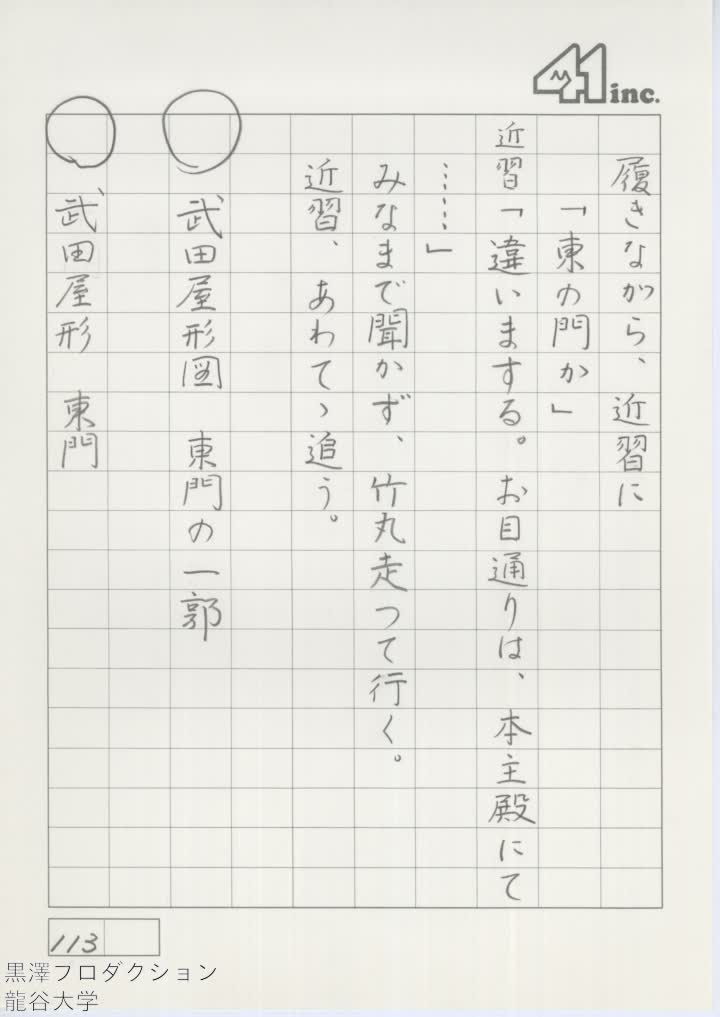 41 inc.
履きながら、近習に
「東の門か」
近習「違いまする。お目通りは、本主殿にて
……」
みなまで聞かず、竹丸走つて行く。
近習、あわてゝ追う。
武田屋形図　東門の一郭
武田屋形　東門
113
黒澤プロダクション
龍谷大学